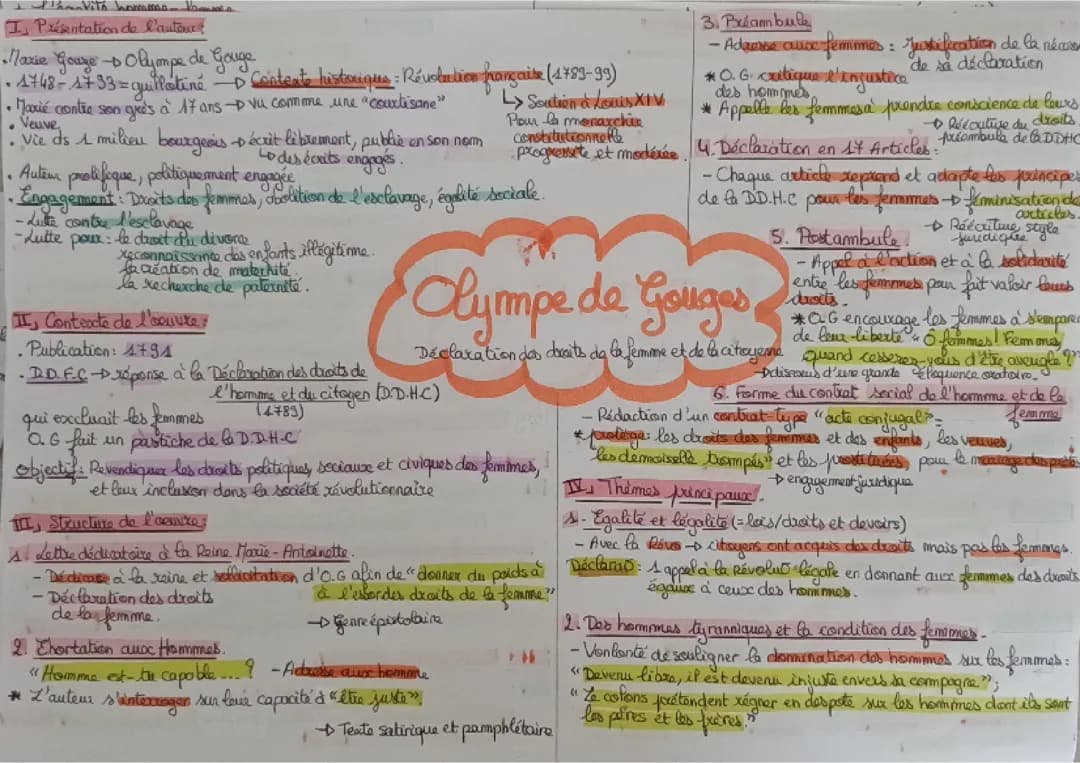 I, Présentation de l'auteur:
• Marie Gouze → Olympe de Gouge
• 1748 - 1793 = guillotiné → Contexte historique : Révolution française (1789-99)
↳ Soutien à Louis XIV
Pour la monarchie
constitutionnelle
progressste et modérée.
• Marié contre son grès à 17 ans → vu comme une "courtisane"
• Veuve
• Vie ds 1 milieu bourgeois → écrit librement, publie en son nom
↳ des écrits engagés.
• Auteur prolifique, politiquement engagée
• Engagement : Droits des femmes, abolition de l'esclavage, égalité sociale.
- Lutte contre l'esclavage
- Lutte pour : le droit du divorce
reconnaissance des enfants illégitime.
la création de maternité.
la recherche de paternité.
II, Contexte de l'œuvre:
• Publication : 1791
• D.D.F.C → réponse à la Déclaration des droits de
l'homme et du citoyen (D.D.H.C)
(1789)
qui excluait les femmes
O.G fait un pastiche de la D.D.H.C
Objectif : Revendiquer les droits politiques, sociaux et civiques des femmes,
et leur inclusion dans la société révolutionnaire
III, Structure de l'œuvre:
1. Lettre dédicatoire à la Reine Marie-Antoinette.
- Dédicace à la reine et sollicitation d'O.G afin de "donner du poids à
à l'essor des droits de la femme"
- Déclaration des droits
de la femme.
→ Genre épistolaire
2. Exhortation aux Hommes.
"Homme est-tu capable ... ? - Adresse aux homme
* L'auteur s'interroger sur leur capacité à "être juste"
→ Texte satirique et pamphlétaire
Olympe de Gouges
Déclaration des droits de la femme et de la citoyenne
3. Préambule
- Adresse aux femmes : justification de la
de sa déclaration
* O.G critique l'injustice
des hommes
* Appelle les femmes à prendre conscience de leurs
droits
→ Réécriture du
préambule de la DDHC
4. Déclaration en 17 Articles :
- Chaque article reprend et adapte les principes
de la D.D.H.C pour les femmes → féminisation de
articles.
→ Réécriture style
juridique
5. Postambule.
- Appel à l'action et à la solidarité
entre les femmes pour fait valoir leurs
droits.
* O.G encourage les femmes à s'emparer
de leur liberté " Ô femmes ! Femmes,
quand cesserez-vous d'être aveugle ?"
→ discours d'une grande éloquence oratoire.
6. Forme du contrat social de l'homme et de la
femme
- Rédaction d'un contrat-type "acte conjugal"
* protège : les droits des femmes et des enfants, les veuves,
"les demoiselle trompés" et les prostituées, pour le mariage des
→ engagement juridique
IV, Thèmes principaux.
1 - Egalité et légalité (= lois/droits et devoirs)
- Avec la Révo → citoyens ont acquis des droits mais pas les femmes.
Déclaraº : 1 appel à la Révoluº légale en donnant aux femmes des droits
égaux à ceux des hommes.
2. Des hommes tyranniques et la condition des femmes.
- Vonlonté de souligner la domination des hommes sur les femmes :
"Devenu libre, il est devenu injuste envers sa compagne";
"Le colons prétendent régner en despote sur les hommes dont ils sont
les pères et les frères."